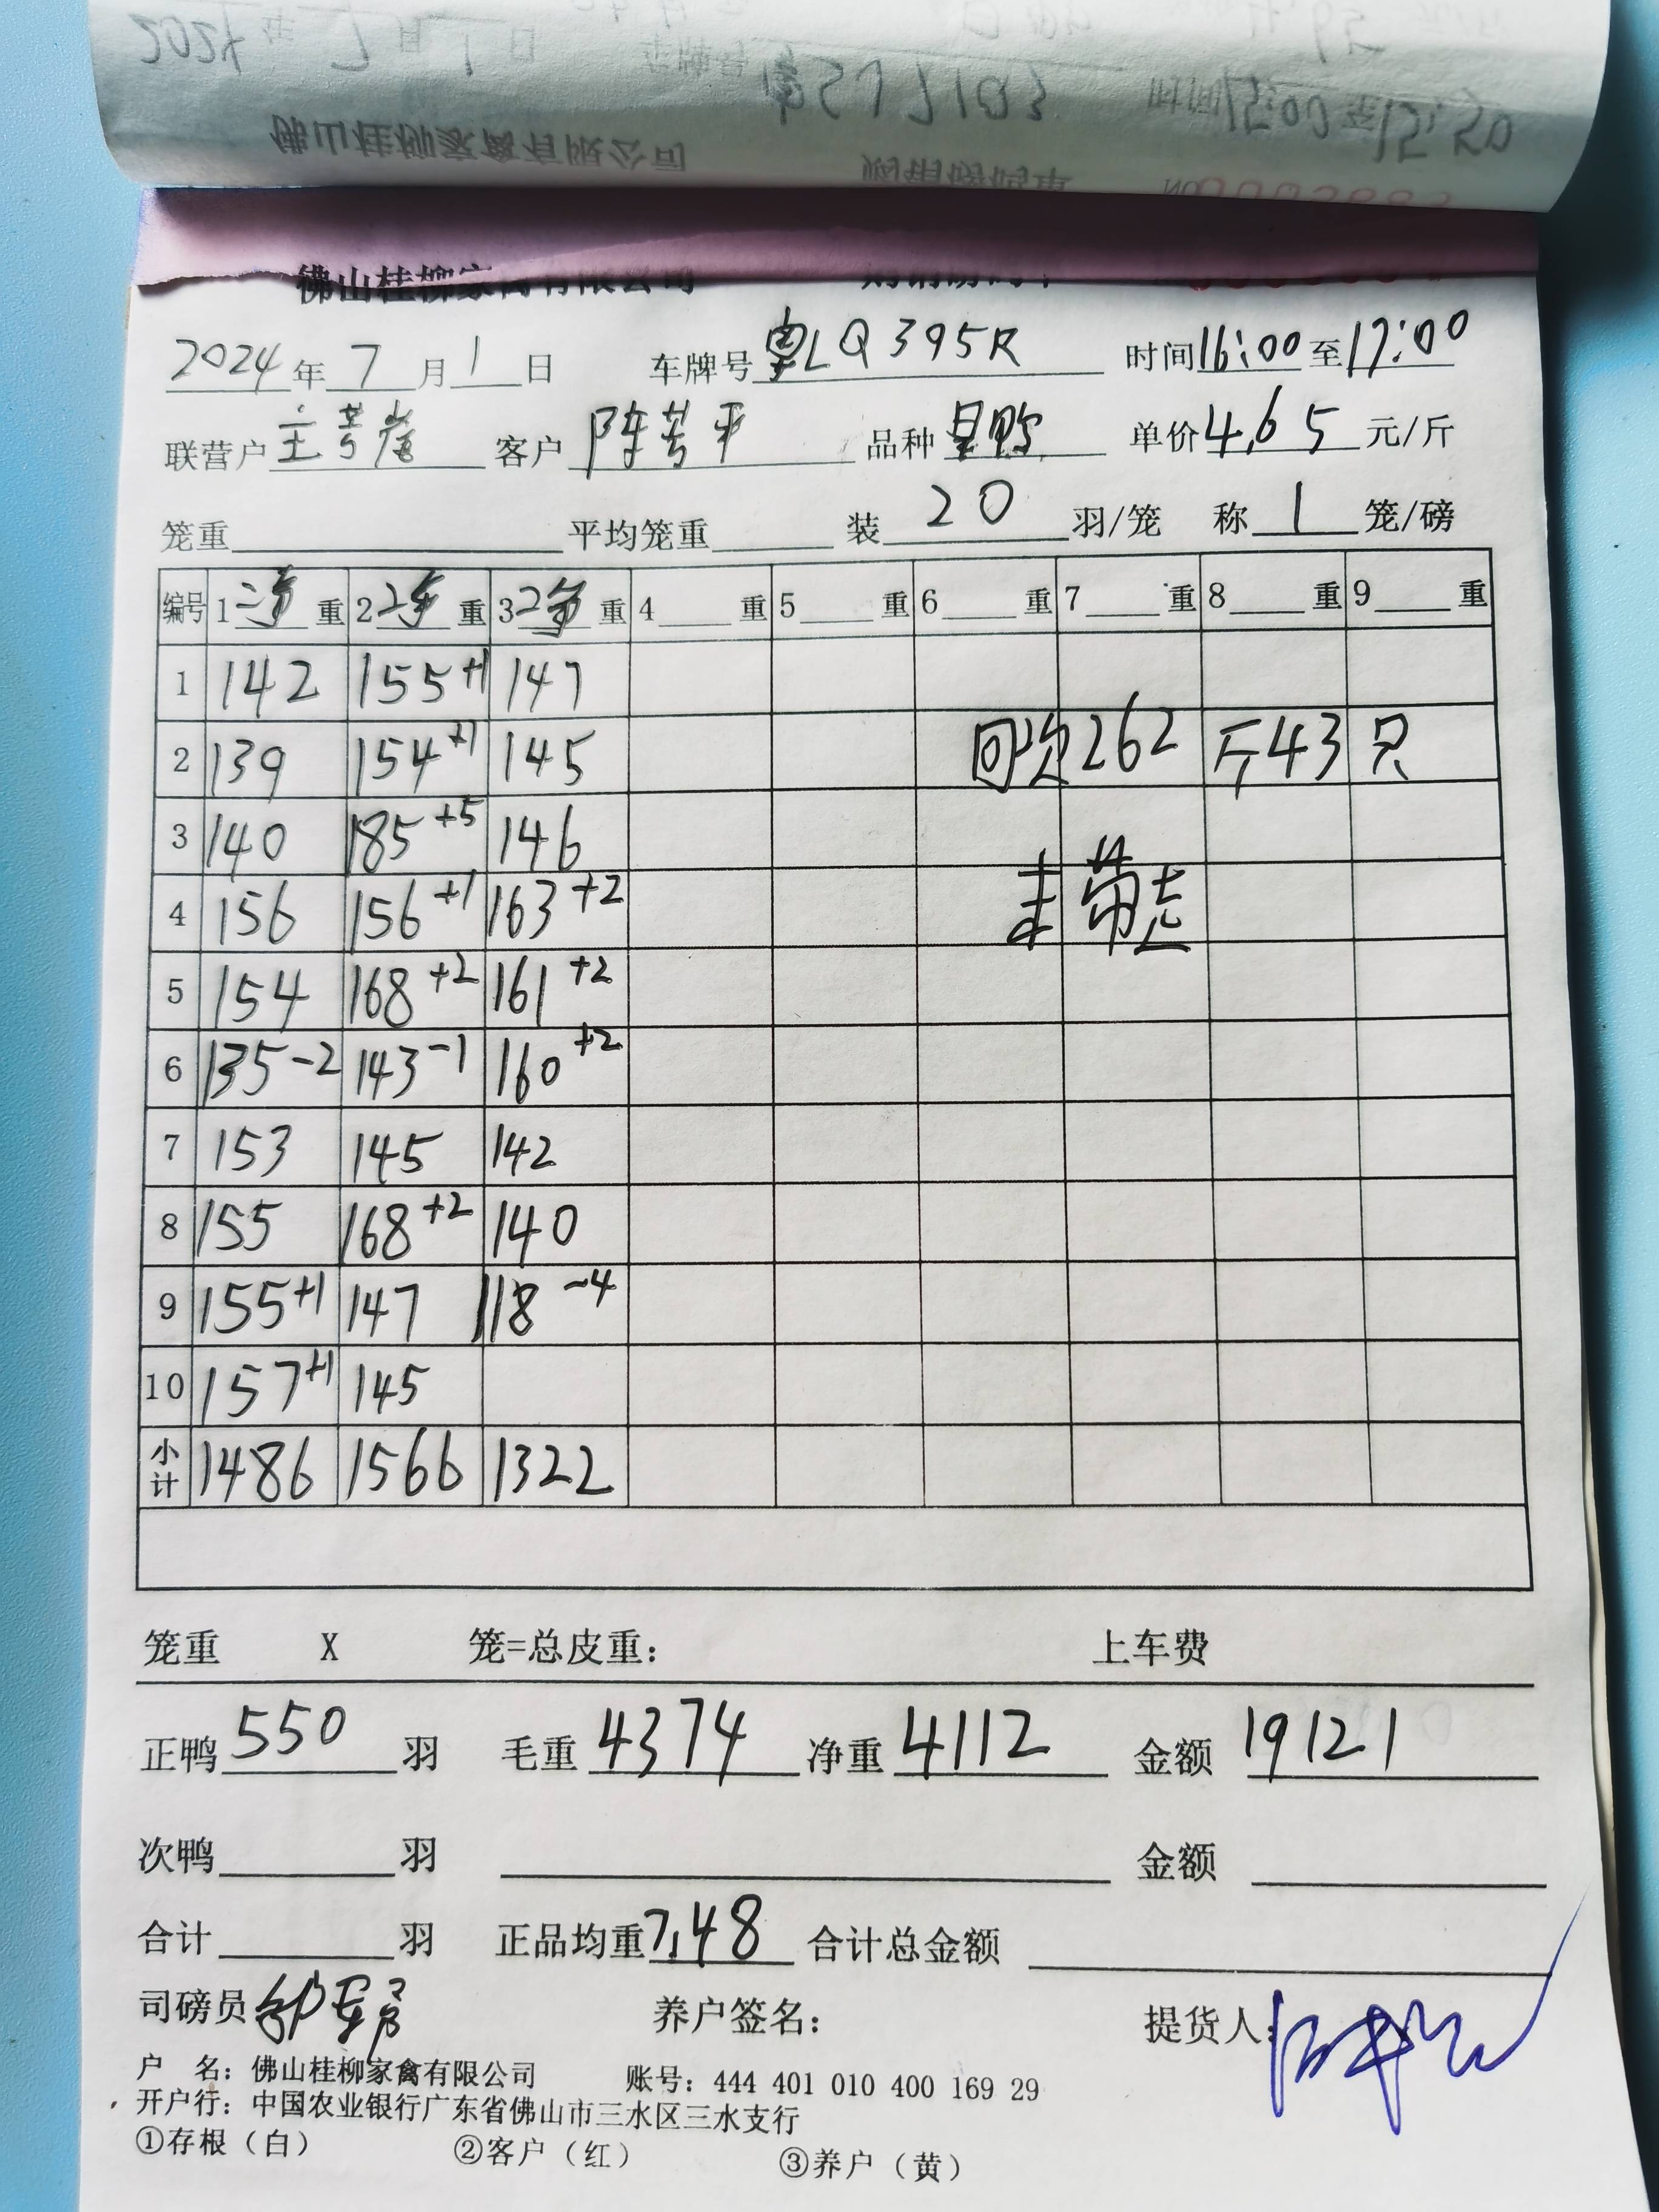 佛山桂柳家禽有限公司
2024年7月1日 车牌号粤LQ395R 时间16:00至17:00
联营户 客户 陈芳平 品种 单价4.65元/斤
笼重 平均笼重 装20羽/笼 称1笼/磅
编号 1二净重 2二净重 3二净重 4重 5重 6重 7重 8重 9重
1 142 155+1 147
2 139 154+1 145 回次262斤43只
3 140 185+5 146
4 156 156+1 163+2
5 154 168+2 161+2
6 135-2 143-1 160+2
7 153 145 142
8 155 168+2 140
9 155+1 147 118-4
10 157+1 145
小计 1486 1566 1322
笼重 X 笼=总皮重: 上车费
正鸭550羽 毛重4374 净重4112 金额19121
次鸭 羽 金额
合计 羽 正品均重7.48 合计总金额
司磅员 养户签名: 提货人:
户 名: 佛山桂柳家禽有限公司 账号: 444 401 010 400 169 29
开户行: 中国农业银行广东省佛山市三水区三水支行
①存根（白） ②客户（红） ③养户（黄）